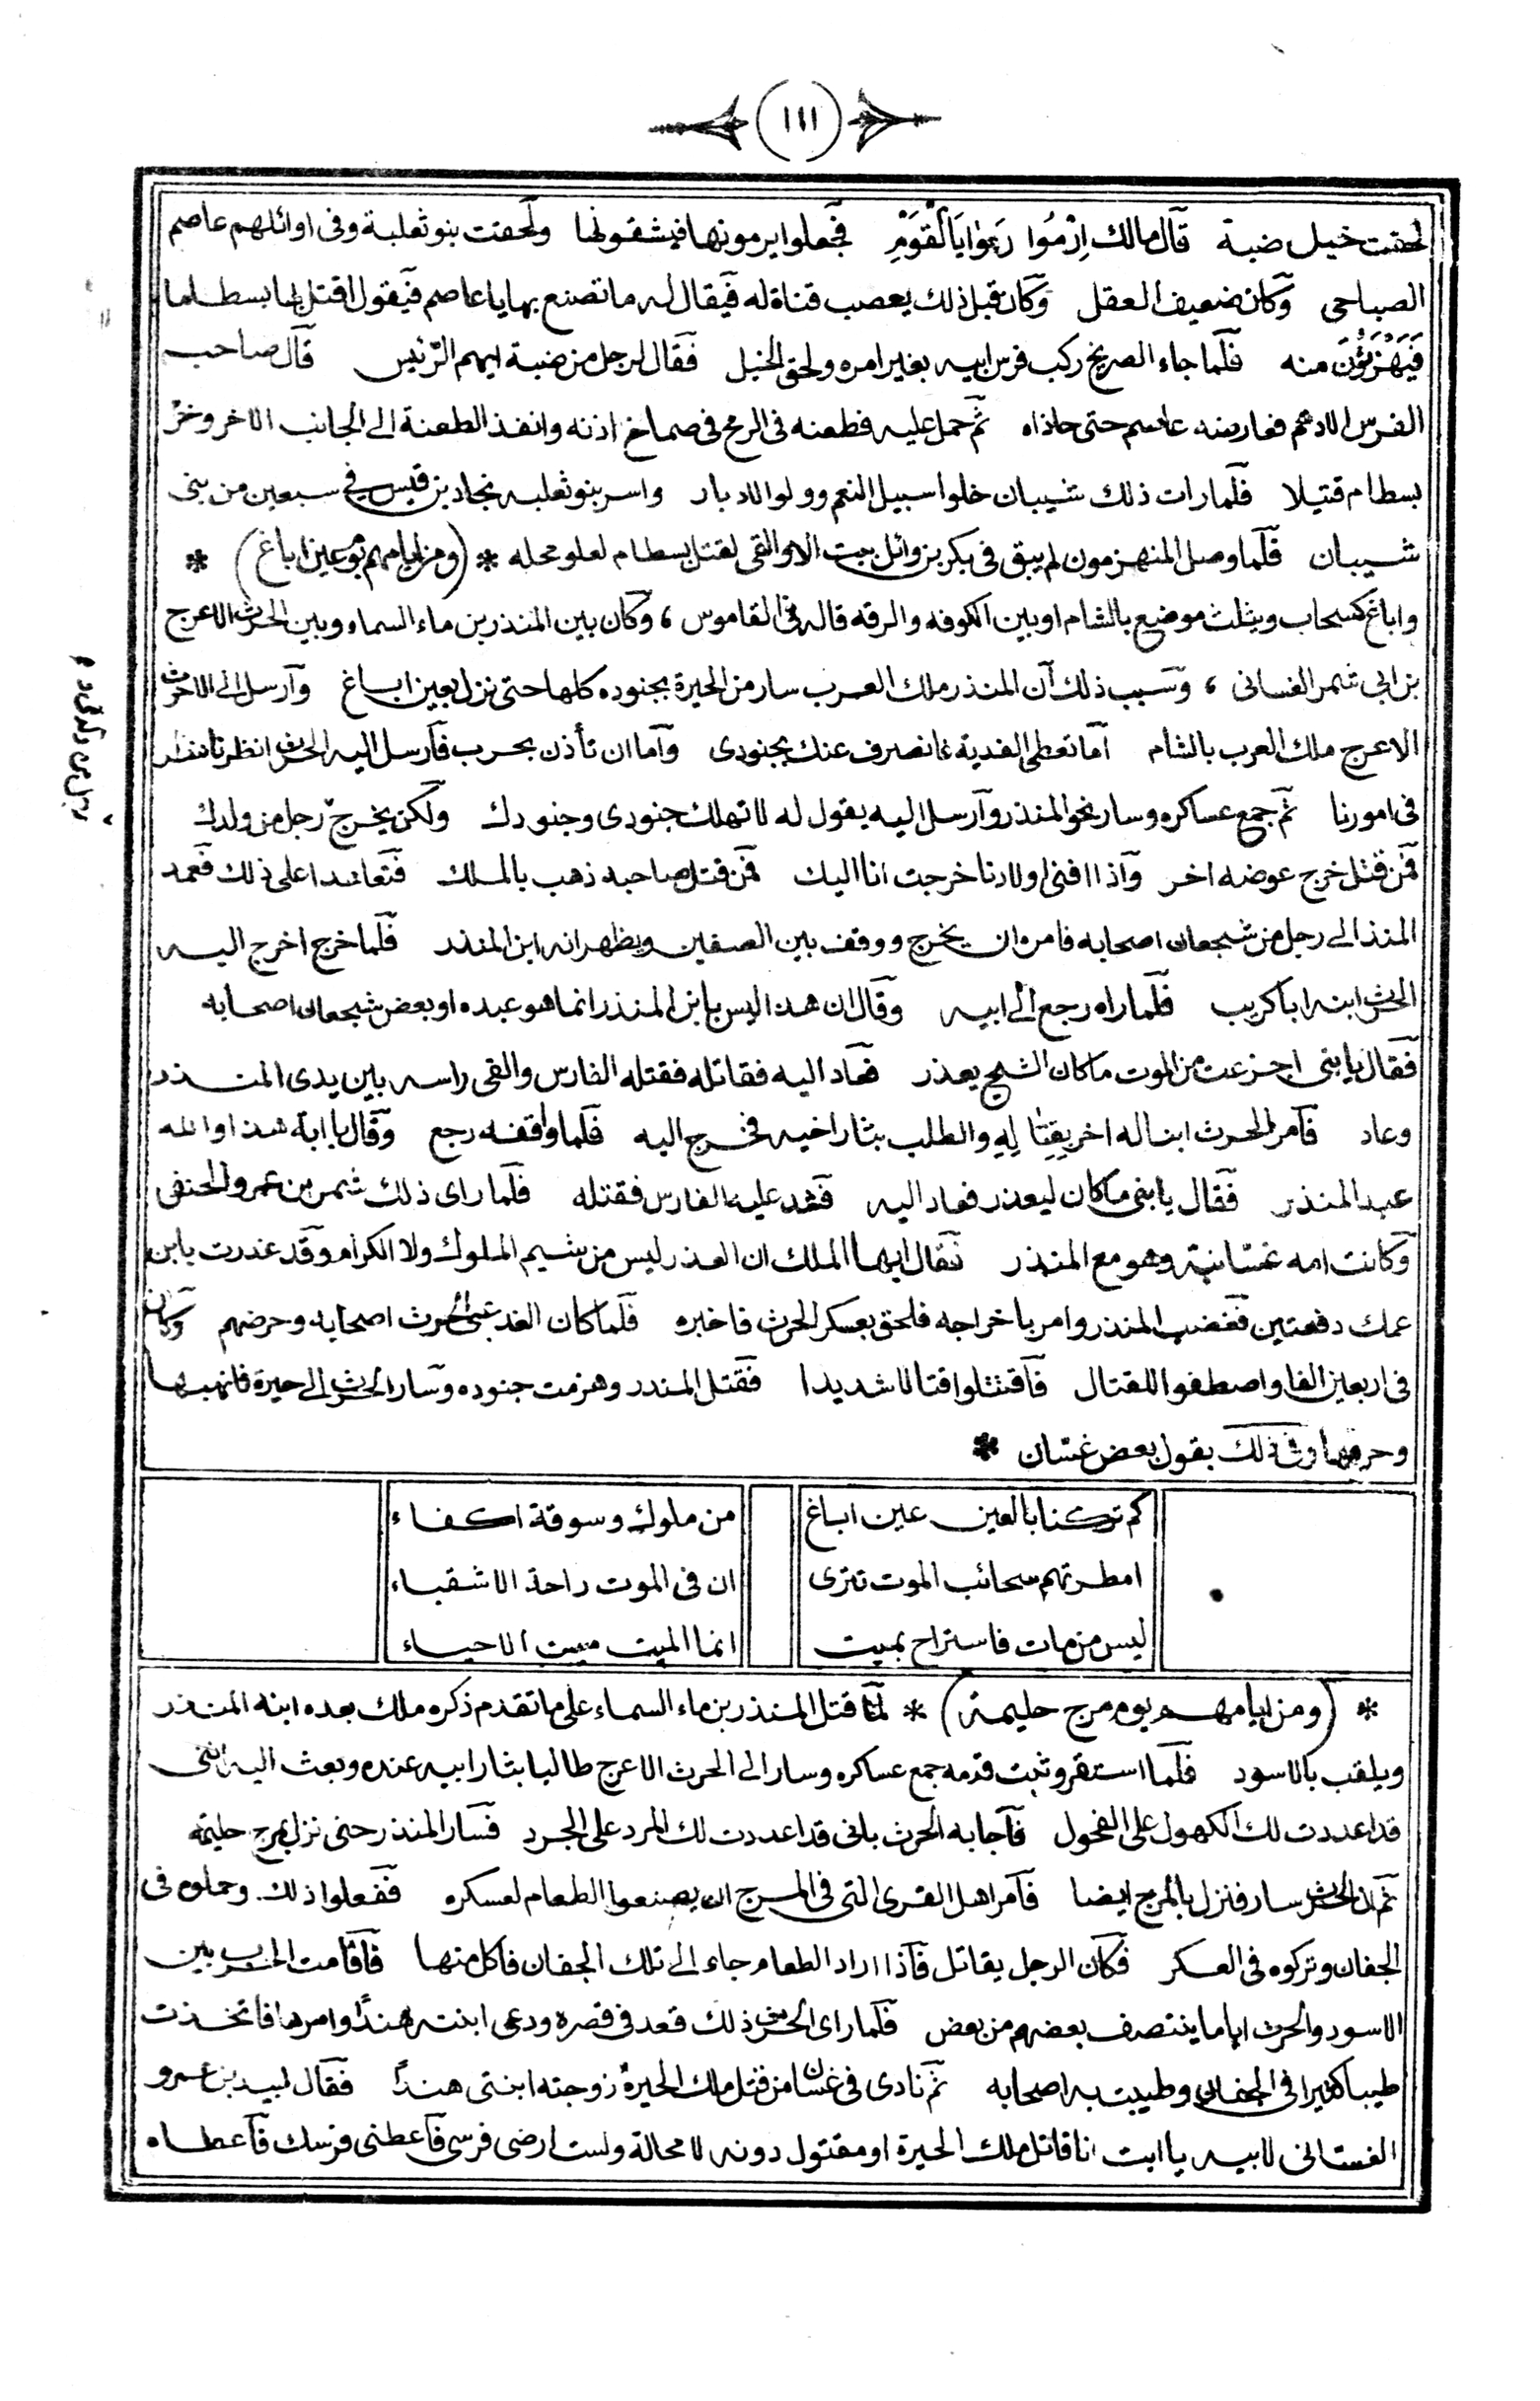 ١١١
لحقت خيل ضبة قال مالك اِرْمُوا رَمْوًا يَا لَقَوْمِ فجعلوا يرمونها فيشقونها ولحقت بنو ثعلبة وفى اوائلهم عاصم
الصباحى وكان ضعيف العقل وكان قبل ذلك يعصب قناة له فيقال له ما تصنع بها يا عاصم فيقول اقتل بها بسطاما
فَيَهْزَئُونَ منه فلما جاء الصريخ ركب فرس ابيه بغير امره ولحق الخيل فقال لرجل من ضبة ايهم الرئيس قال صاحب
الفرس الادهم فعارضه عاصم حتى حاذاه ثم حمل عليه فطعنه فى الرمح فى صماخ اذنه وانفذ الطعنة الى الجانب الاخر وخرّ
بسطام قتيلا فلما رات ذلك شيبان خلوا سبيل النعم وولوا الادبار واسر بنو ثعلبه نجاد بن قيس في سبعين من بنى
شيبان فلما وصل المنهزمون لم يبق فى بكر بن وائل بيت الا والقى لقتل بسطام لعلو محله * (ومن ايامهم يوم عين اباغ) *
واباغ كسحاب ويثلث موضع بالشام او بين الكوفه والرقه قاله فى القاموس ، وكان بين المنذر بن ماء السماء وبين الحرث الاعرج
بن ابى شمر الغسانى ، وسبب ذلك ان المنذر ملك العرب سار من الحيرة بجنوده كلها حتى نزل بعين اباغ وارسل الى الحرث
الاعرج ملك العرب بالشام اما تعطى الفدية فانصرف عنك بجنودى واما ان تأذن بحرب فارسل اليه الحرث انظرنا ننظر
فى امورنا ثم جمع عساكره وسار نحو المنذر وارسل اليه يقول له لا تهلك جنودى وجنودك ولكن يخرج رجل من ولدك
فمن قتل خرج عوضه اخر واذا افنى اولادنا خرجت انا اليك فمن قتل صاحبه ذهب بالملك فتعاهدا على ذلك فعمد
المنذر الى رجل من شجعان اصحابه فامره ان يخرج ووقف بين الصفين ويظهر انه ابن المنذر فلما خرج اخرج اليه
الحرث ابنه ابا كريب فلما راه رجع الى ابيه وقال ان هذا ليس بابن المنذر انما هو عبده او بعض شجعان اصحابه
فقال يا بنى اجزعت من الموت ما كان الشيخ يعذر فعاد اليه فقاتله فقتله الفارس والقى راسه بين يدى المنذر
وعاد فامر الحرث ابنا له اخر بِقِتَالِهِ والطلب بثار اخيه فخرج اليه فلما واقفه رجع وقال يا ابة هذا والله
عبد المنذر فقال يا بنى ما كان ليعذر فعاد اليه فشد عليه الفارس فقتله فلما راى ذلك شمر بن عمرو الحنفى
وكانت امه غسّانية وهو مع المنذر فقال ايها الملك ان العذر ليس من شيم الملوك ولا الكرام وقد عذرت بابن
عمك دفعتين فغضب المنذر وامر باخراجه فلحق بعسكر الحرث فاخبره فلما كان الغد عبى الحرث اصحابه وحرضهم وكان
فى اربعين الفا واصطفوا للقتال فاقتتلوا قتالا شديدا فقتل المنذر وهزمت جنوده وسار الحرث الى حيرة فانهبها
وحرقها وفى ذلك يقول بعض غسّان *
كم تركنا بالعين عين اباغ من ملوك وسوقة اكفاء
امطرتهم سحائب الموت تترى ان فى الموت راحة الاشقياء
ليس من مات فاستراح بميت انما الميت ميت الاحياء
* (ومن ايامهم يوم مرج حليمة) * لما قتل المنذر بن ماء السماء على ما تقدم ذكره ملك بعده ابنه المنذر
ويلقب بالاسود فلما استقر وثبت قدمه جمع عساكره وسار الى الحرث الاعرج طالبا بثار ابيه عنده وبعث اليه اننى
قد اعددت لك الكهول على الفحول فاجابه الحرث بانى قد اعددت لك المرد على الجرد فسار المنذر حتى نزل بمرج حليمة
ثم ان الحرث سار فنزل بالمرج ايضا فامر اهل القرى التى فى المرج ان يصنعوا الطعام لعسكره ففعلوا ذلك وحملوه فى
الجفان وتركوه فى العسكر فكان الرجل يقاتل فاذا اراد الطعام جاء الى تلك الجفان فاكل منها فاقامت الحرب بين
الاسود والحرث اياما ينتصف بعضهم من بعض فلما راى الحرث ذلك قعد فى قصره ودعى ابنته هندًا وامرها فاتخذت
طيبا كثيرا فى الجفان وطيبت به اصحابه ثم نادى فى غسان من قتل ملك الحيرة زوجته ابنتى هندًا فقال لبيد بن عمرو
الغسانى لابيه يا ابت انا قاتل ملك الحيرة او مقتول دونه لا محالة ولست ارضى فرسى فاعطنى فرسك فاعطاه